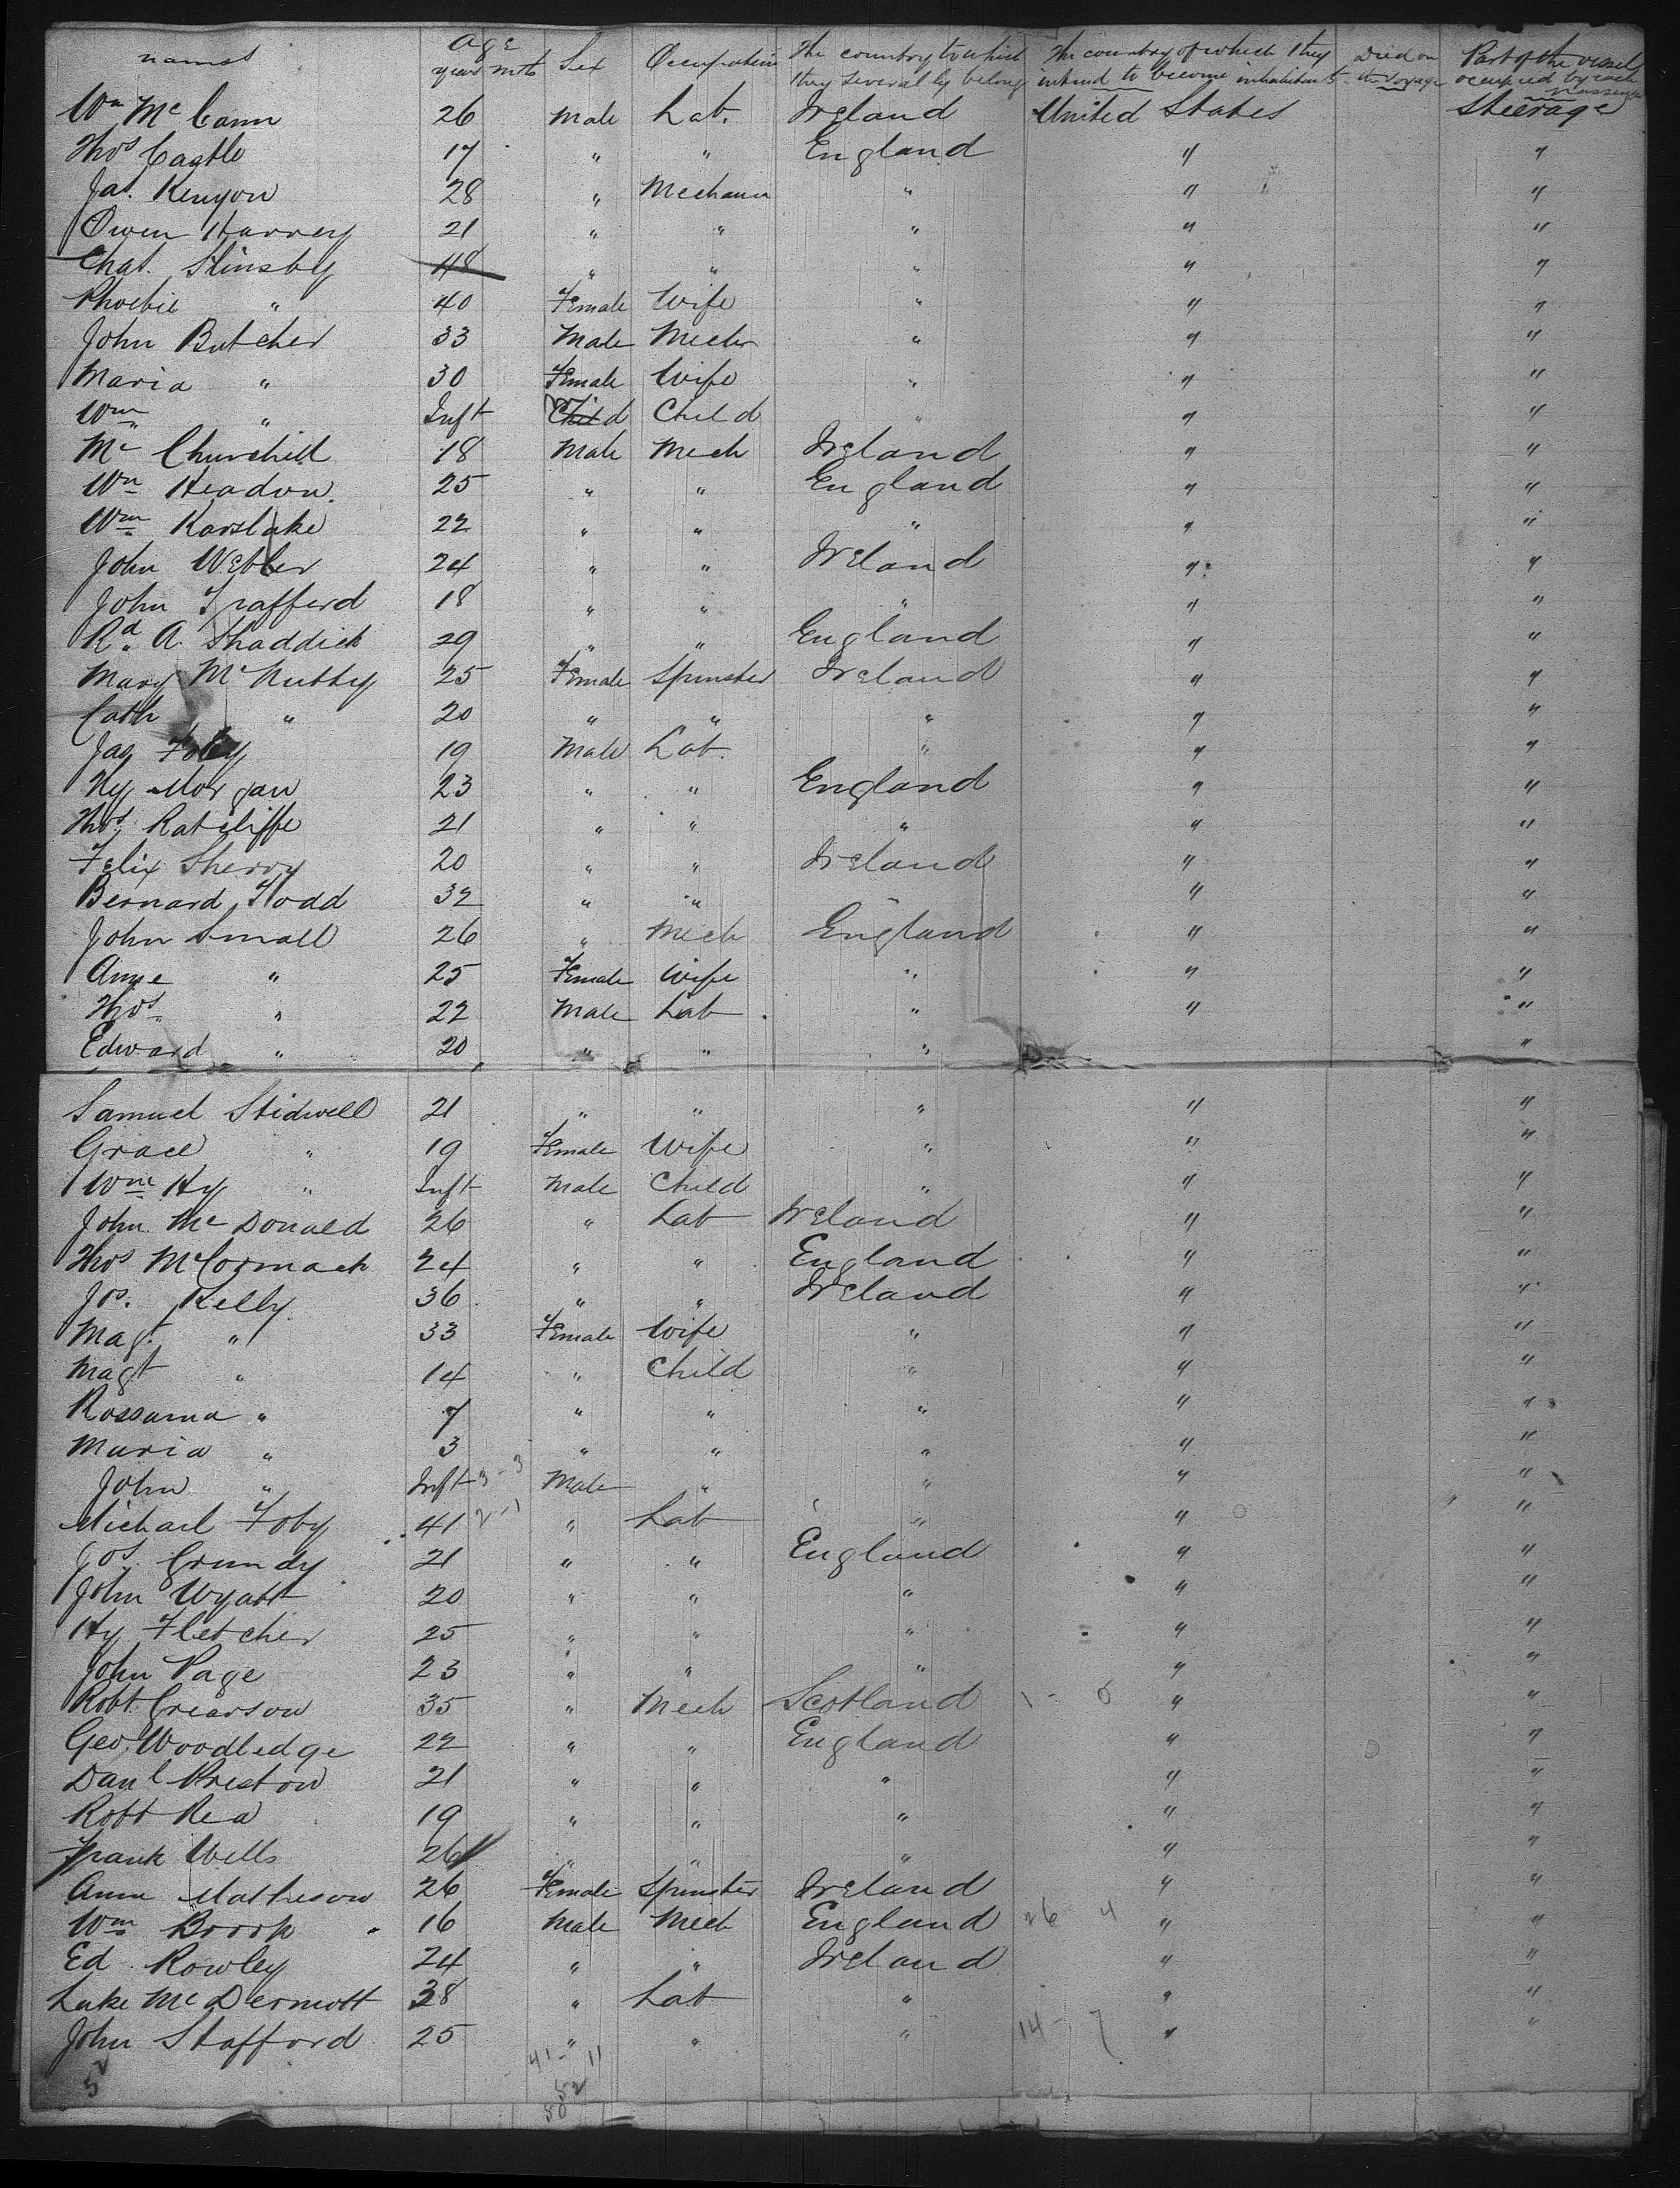 names Age years mts Sex Occupation The country to which they severally belong The country of which they intend to become inhabitants Died on the voyage Part of the vessel occupied by each passenger
Wm McCann 26 Male Lab. Ireland United States Steerage
Thos Castle 17 " " England " "
Jas. Kenyon 28 " Mechanic " " "
Owen Harvey 21 " " " " "
Chas. Slinsby 48 " " " " "
Phoebie " 40 Female Wife " " "
John Butcher 33 Male Mechn " " "
Maria " 30 Female Wife " " "
Wm " Inft Child Child " " "
Mc Churchill 18 Male Mech Ireland " "
Wm Headon. 25 " " England " "
Wm Karslake 22 " " " " "
John Webber 24 " " Ireland " "
John Trafferd 18 " " " " "
Rd. A. Shaddick 29 " " England " "
Mary McNutty 25 Female Spinster Ireland " "
Cath " 20 " " " " "
Jas Foley 19 Male Lab. " " "
Hy Morgan 23 " " England " "
Thos. Ratcliffe 21 " " " " "
Felix Sherry 20 " " Ireland " "
Bernard Hodd 32 " " " " "
John Small 26 " Mech England " "
Anne " 25 Female Wife " " "
Thos. " 22 Male Lab " " "
Edward " 20 " " " "
Samuel Stidwell 21 " " " " "
Grace " 19 Female Wife " " "
Wm Hy " Inft Male Child " " "
John McDonald 26 " Lab Ireland " "
Thos McCormack 24 " " England " "
Jos. Kelly 36 " " Ireland " "
Mag. " 33 Female Wife " " "
Magt " 14 " Child " " "
Rossanna " 7 " " " " "
Maria " 3 " " " " "
John " Inft 3-3 Male " " " "
Michael Foby 41 2-1 " Lab " " "
Jos. Grundy 21 " " England " "
John Wyatt 20 " " " " "
Hy Fletcher 25 " " " " "
John Page 23 " " " " "
Robt. Grearson 35 " Mech Scotland 1 - 0 " "
Geo. Woodledge 22 " " England " "
Danl Preston 21 " " " " "
Robt Rea 19 " " " " "
Frank Wells 26 " " " " "
Anne Mathieson 26 Female Spinster Ireland " "
Wm Broop 16 Male Mech England 26 4 " "
Ed Rowley 24 " " Ireland " "
Luke McDermott 38 " Lab " " "
John Stafford 25 " " " 14 - 7 " "
52 41 - 11
52